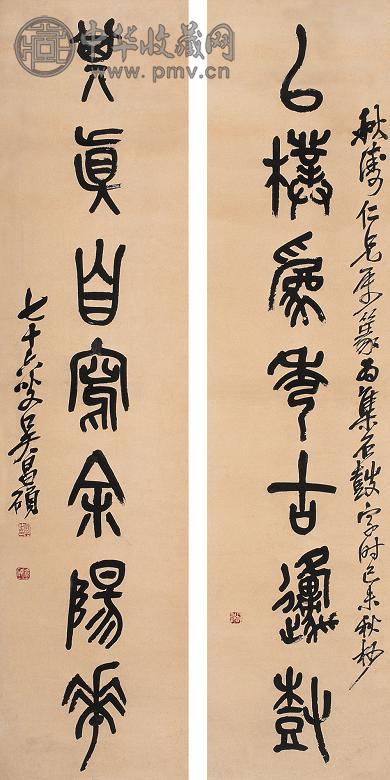 中华收藏网
www.pmv.cn
秋濤仁兄屬篆為集石鼓字時己未秋杪
以樸為秀古邍樹
其真自寫余陽華
七十六叟吳昌碩